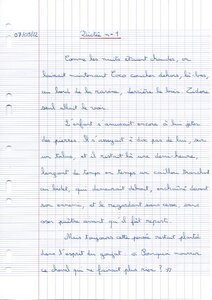 07/09/12
Dictée n°1
Comme les nuits étaient chaudes, on
laissait maintenant Coco coucher dehors, là-bas,
au bord de la ravine, derrière le bois. Zidore
seul allait le voir.
L'enfant s'amusait encore à lui jeter
des pierres. Il s'asseyait à dix pas de lui, sur
un talus, et il restait là une demi-heure,
lançant de temps en temps un caillou tranchant
au bidet, qui demeurait debout, enchaîné devant
son ennemi, et le regardant sans cesse, sans
oser paître avant qu'il fût reparti.
Mais toujours cette pensée restait plantée
dans l'esprit du goujat : « Pourquoi nourrir
ce cheval qui ne faisait plus rien ? »